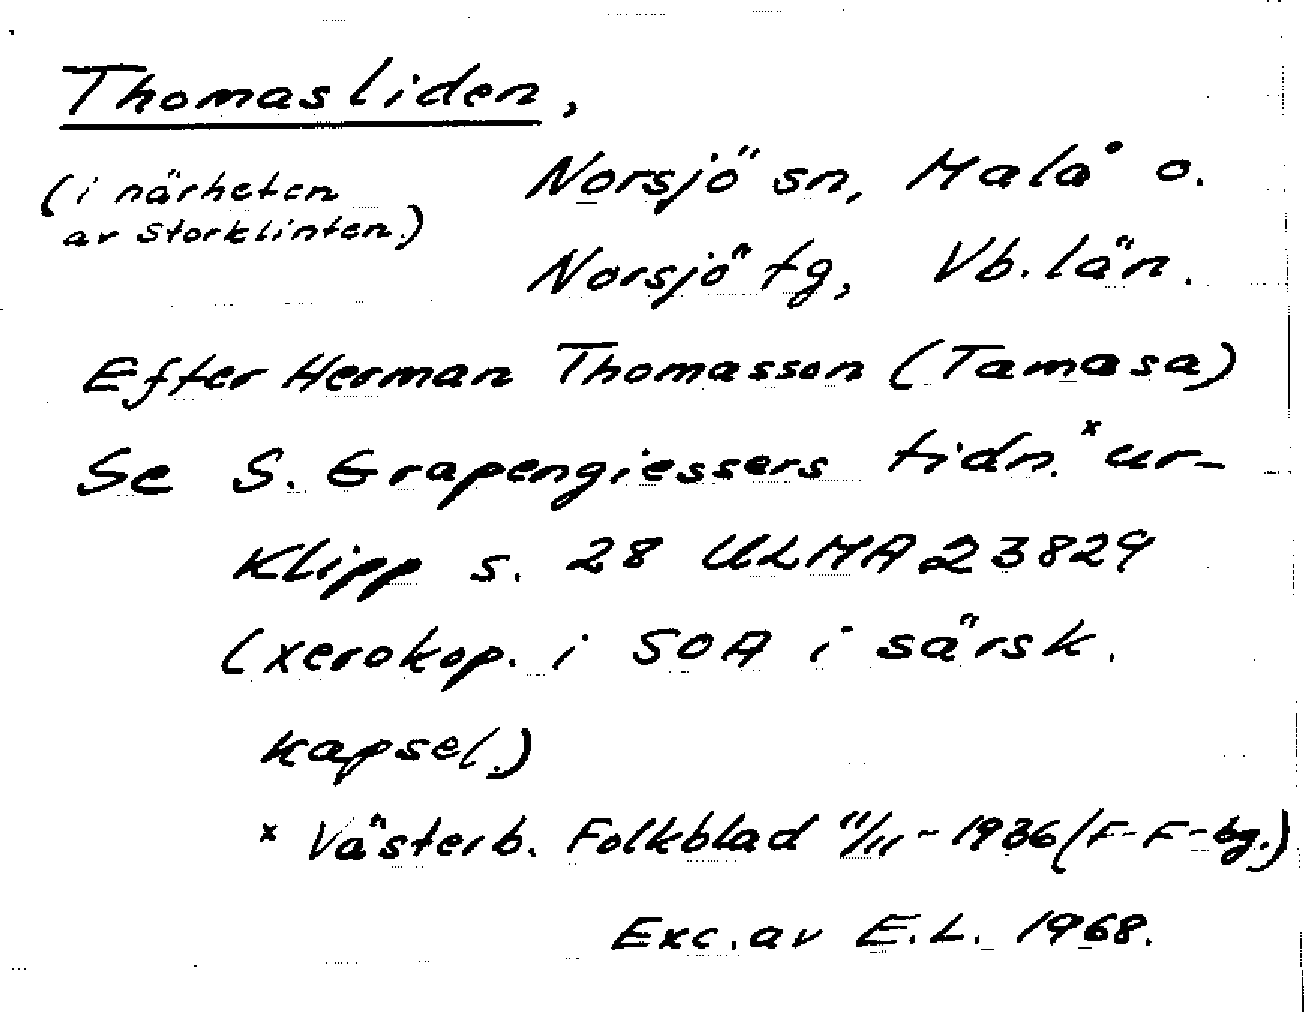 Thomasliden,
(i närheten
av Storklinten.)
Norsjö sn, Malå o.
Norsjö tg, Vb. län.
Efter Herman Thomasson (Tamasa)
Se S. Grapengiessers tidn.ˣ ur-
klipp s. 28 ULMA 23829
(xerokop. i SOA i särsk.
kapsel.)
x Västerb. Folkblad 11/11-1936 (F-F-bg.)
Exc. av E.L. 1968.